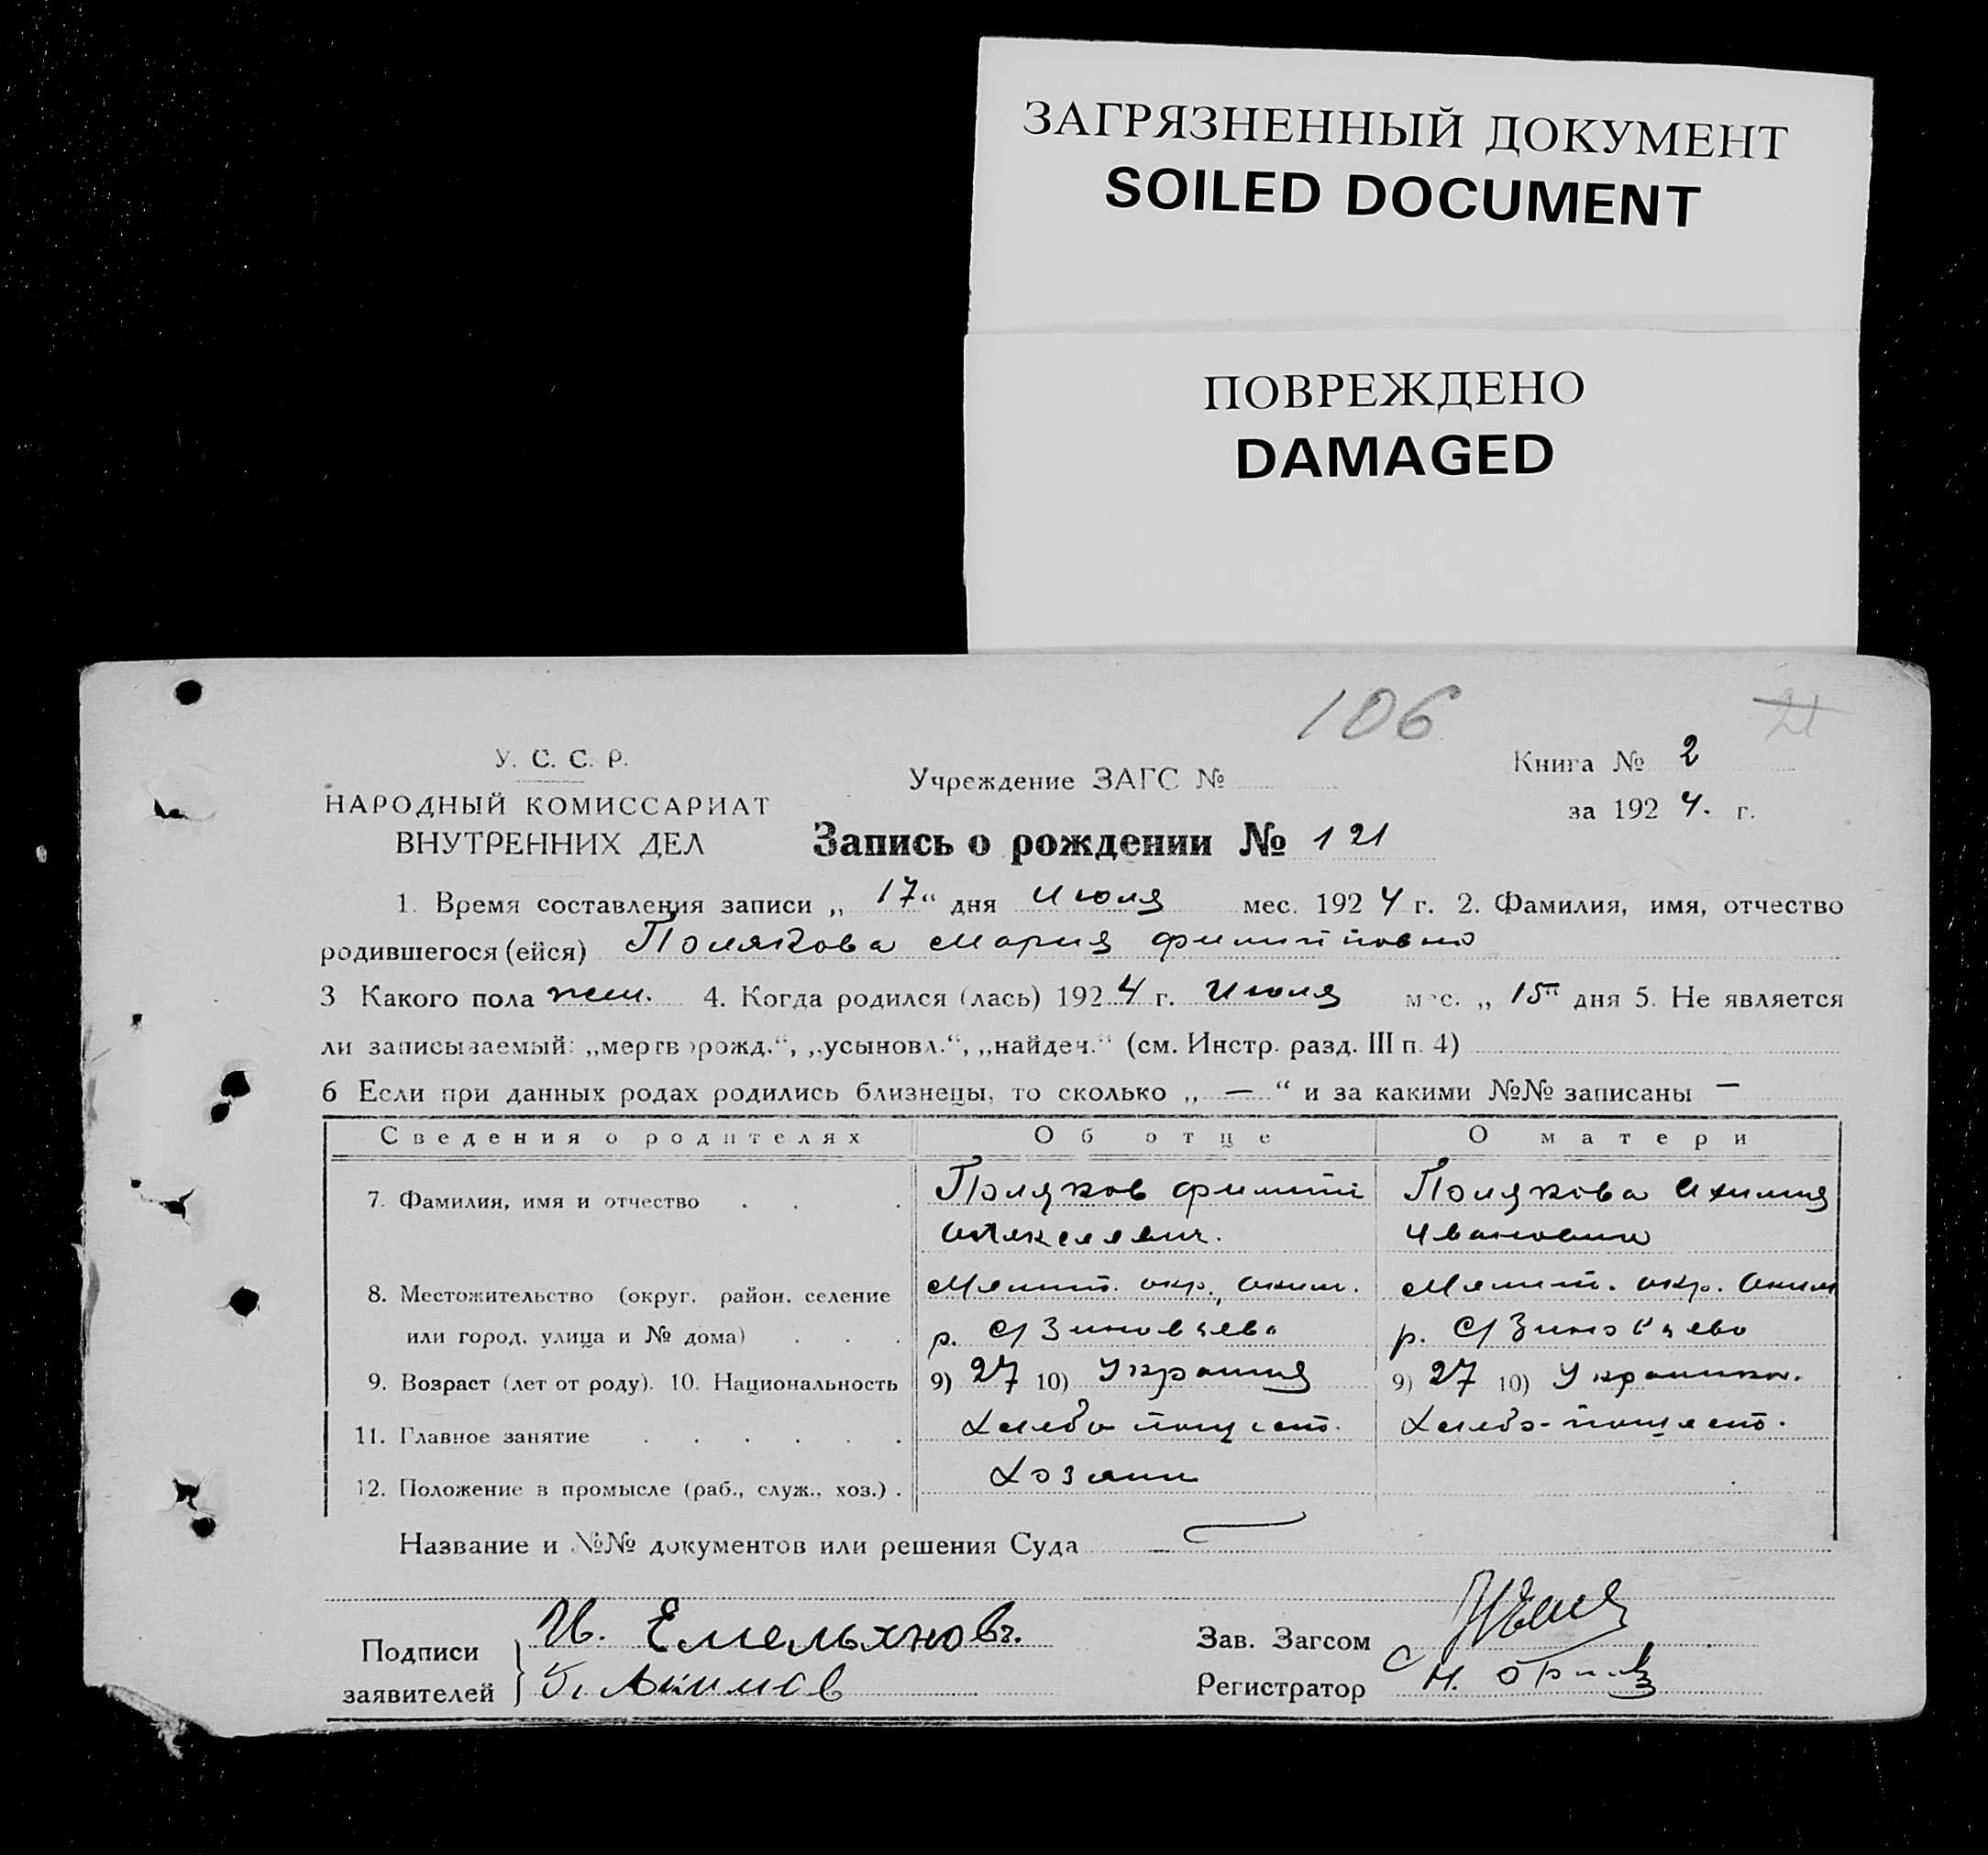 ЗАГРЯЗНЕННЫЙ ДОКУМЕНТ
SOILED DOCUMENT
ПОВРЕЖДЕНО
DAMAGED
106
У. С. С. Р.
НАРОДНЫЙ КОМИССАРИАТ
ВНУТРЕННИХ ДЕЛ
Учреждение ЗАГС №
Книга № 2
за 1924. г.
Запись о рождении № 121
1. Время составления записи „ 17 “ дня Июля мес. 1924 г. 2. Фамилия, имя, отчество
родившегося (ейся) Полякова Мария Филипповна
3 Какого пола жен. 4. Когда родился (лась) 1924 г. Июля мес. „ 15 “ дня 5. Не является
ли записываемый: „мертворожд.“, „усыновл.“, „найден.“ (см. Инстр. разд. III п. 4)
6 Если при данных родах родились близнецы, то сколько „ — “ и за какими №№ записаны —
Сведения о родителях Об отце О матери
7. Фамилия, имя и отчество Поляков Филипп Полякова
Алексеевич. Ивановна
8. Местожительство (округ, район, селение Мелит. окр., Аким. Мелит. окр. Аким
или город, улица и № дома) р. С/ Зиновьево р. С/ Зиновьево
9. Возраст (лет от роду). 10. Национальность 9) 27 10) 9) 27 10) Украинка.
11. Главное занятие Хлебопашест. Хлебо-пашест.
12. Положение в промысле (раб., служ., хоз.) . Хозяин
Название и №№ документов или решения Суда —
Подписи
заявителей
И. Емельянов.
Акимов
Зав. Загсом
Регистратор